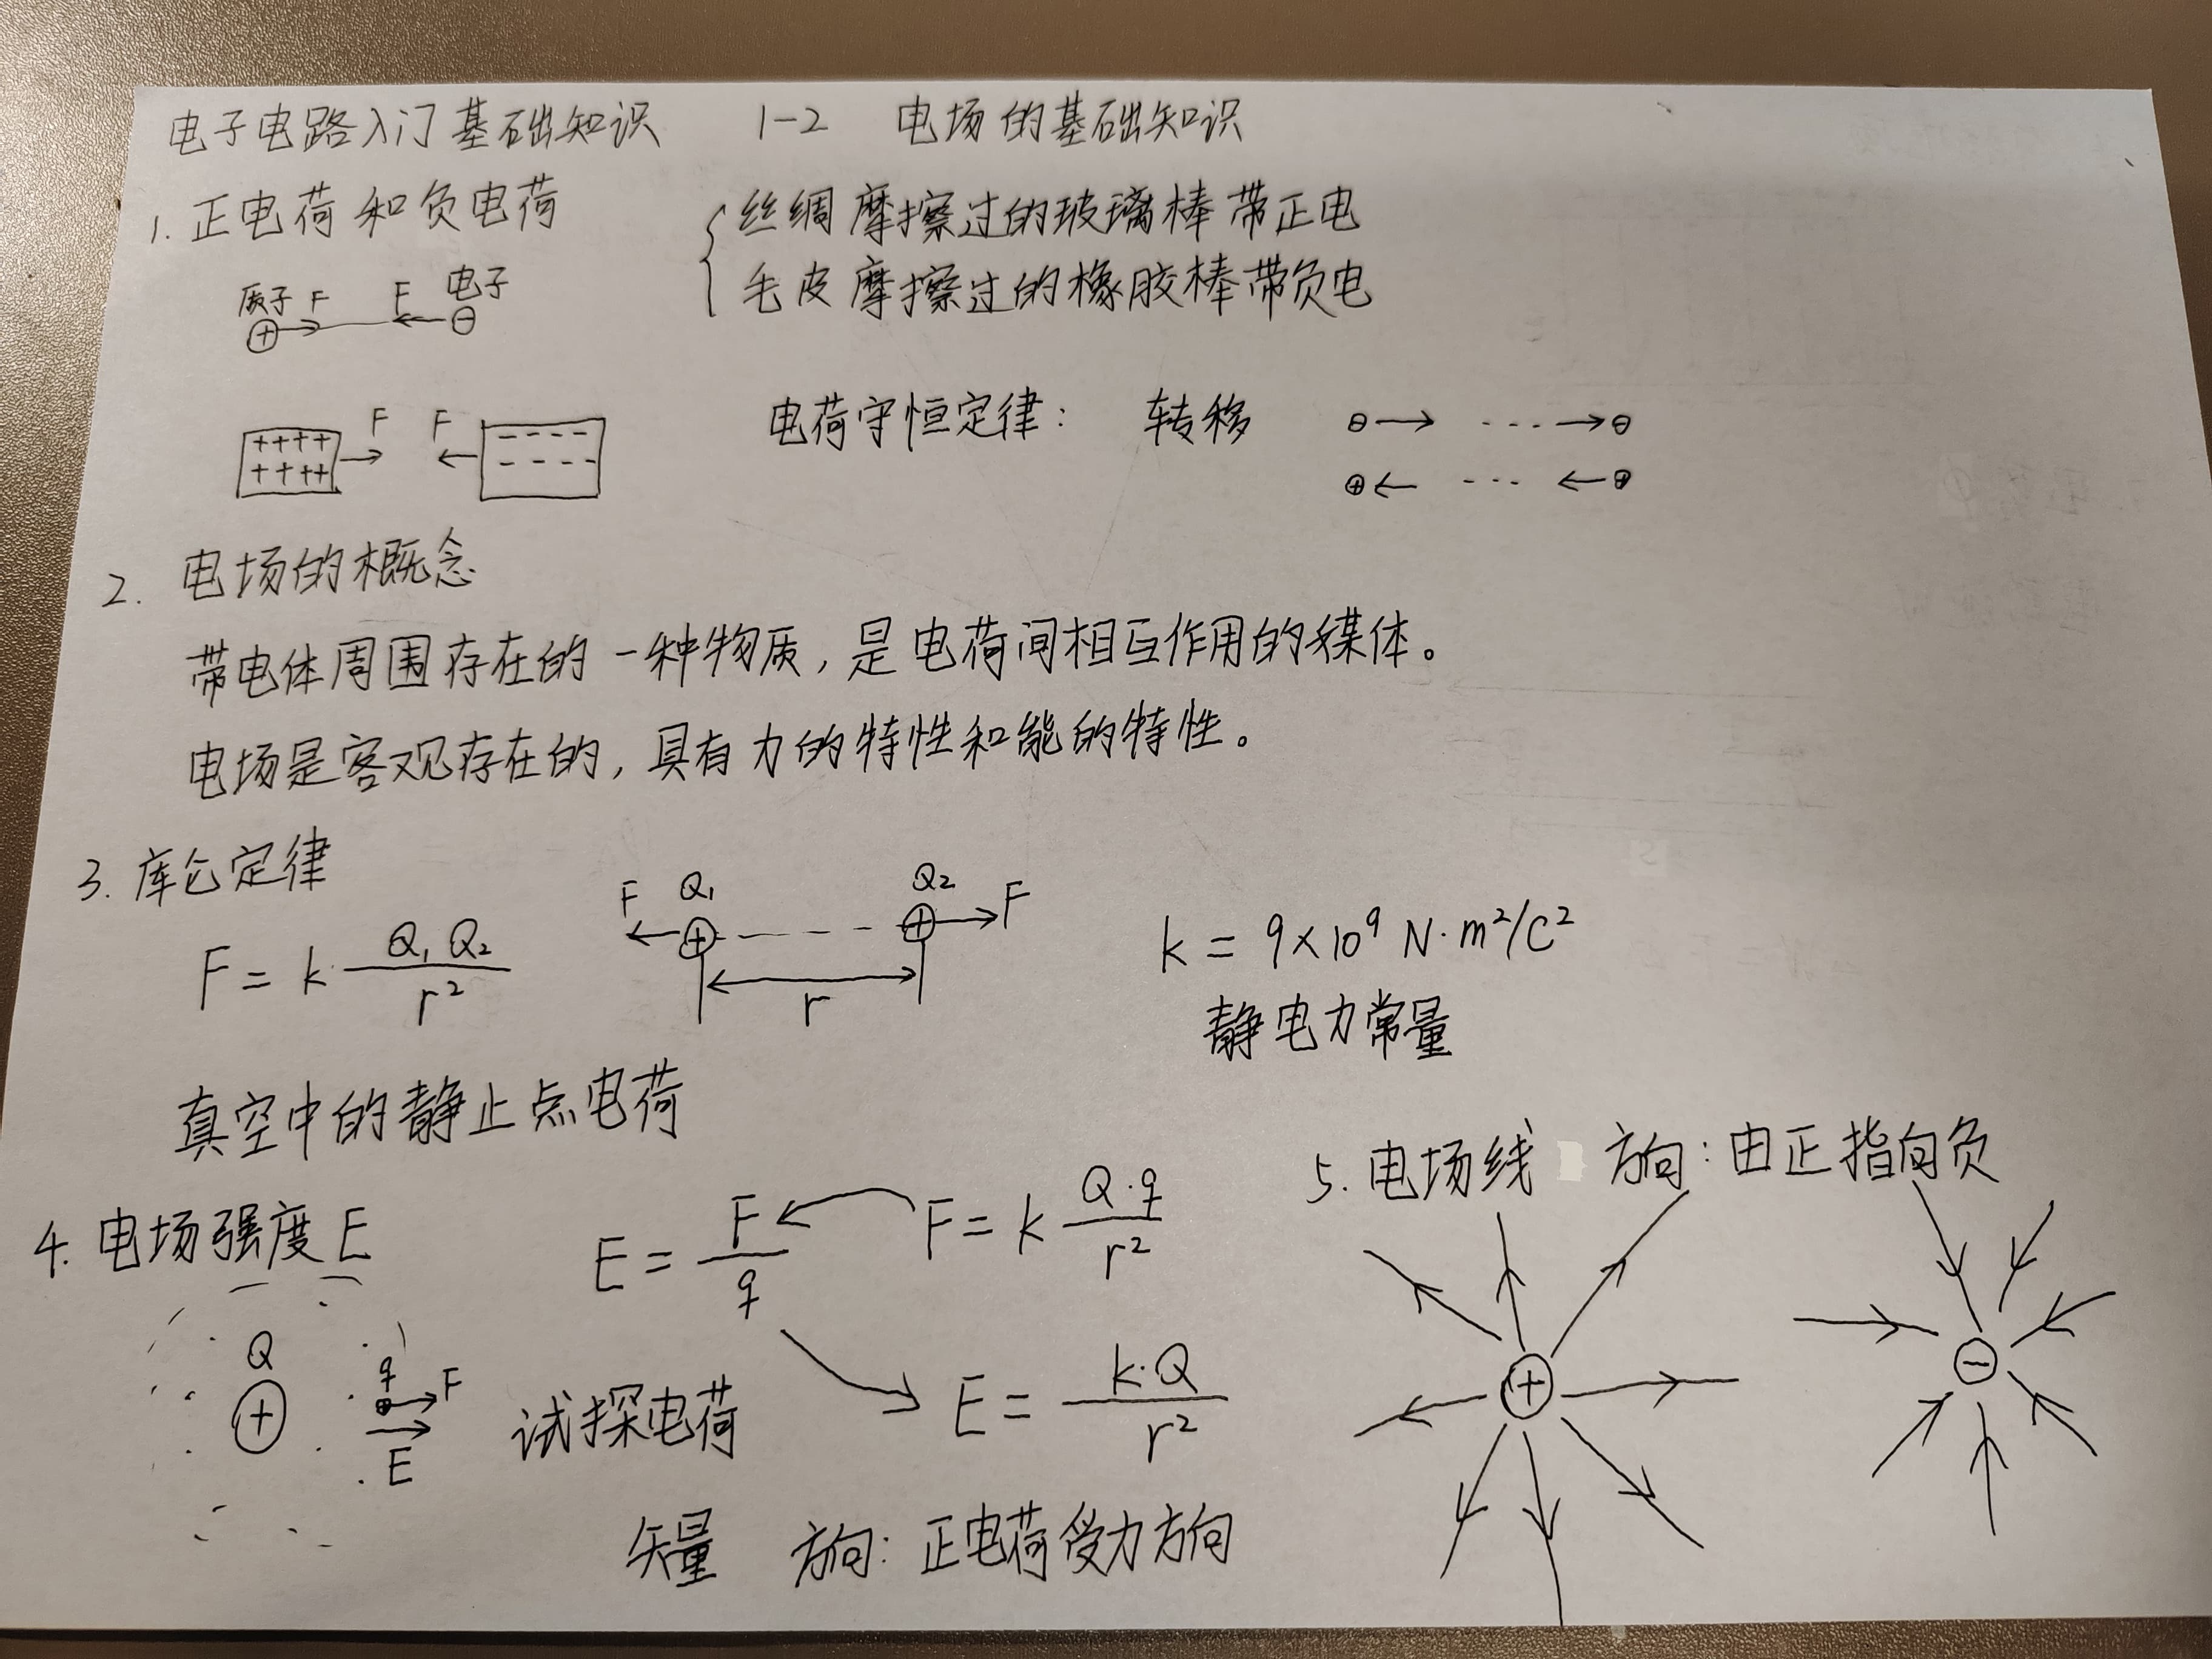 电子电路入门基础知识 1-2 电场的基础知识
1. 正电荷和负电荷
丝绸摩擦过的玻璃棒带正电
毛皮摩擦过的橡胶棒带负电
质子 F F 电子
+ −
F F
++++ − − − −
++++ − − − −
电荷守恒定律： 转移
⊖→ ... →⊖
⊕← ... ←⊕
2. 电场的概念
带电体周围存在的一种物质，是电荷间相互作用的媒体。
电场是客观存在的，具有力的特性和能的特性。
3. 库仑定律
F = k Q₁Q₂/r²
F Q₁ Q₂ F
+ +
r
k = 9×10⁹ N·m²/C²
静电力常量
真空中的静止点电荷
4. 电场强度E
E = F/q F = k Q·q/r²
Q q F
+ E
试探电荷
E = k·Q/r²
矢量 方向：正电荷受力方向
5. 电场线 方向：由正指向负
+ −